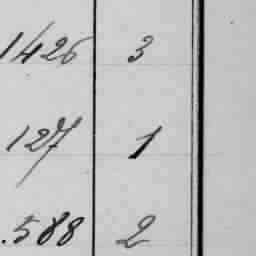 1426 3
127 1
.588 2